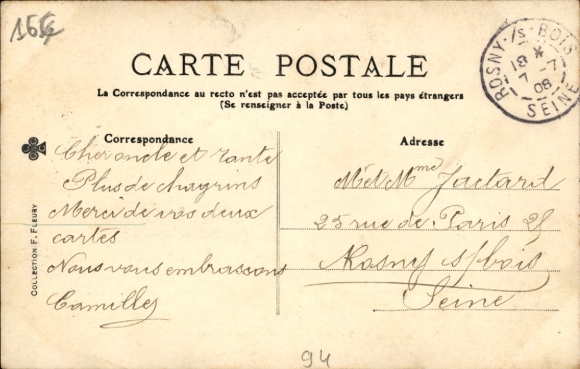 16€
CARTE POSTALE
La Correspondance au recto n'est pas acceptée par tous les pays étrangers
(Se renseigner à la Poste)
ROSNY-/s-BOIS
18 *
7 -7
08
SEINE
Correspondance
Cher oncle et tante
Plus de chagrins
Merci de vos deux
cartes
Nous vous embrassons
Camille
COLLECTION F. FLEURY
Adresse
M et Mme Jactard
25 rue de Paris 25
Rosny s/bois
Seine
94